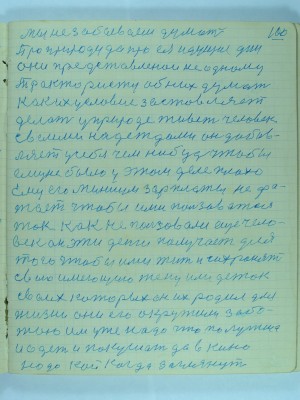 мы не забываем думать 180
Про природу да про ея идущие дни
они представлены не одному
Трактористу об них думать
Каких условие заставляет
делат у природе живет человек
своими надеждами он добав-
ляет у себя чем нибудь чтобы
ему не было у этом деле плохо
Ему его жинцам зарплаты не ха-
тает чтобы ими ползоваться
так как не ползовали еще чело-
век он эти денги получает для
того чтобы ими жит и сохранят
свою имеющую жену или деток
своих которых он их родил для
жизни они его окружены забо-
тою им уже надо что то нужно
и одет и покушат да в кино
надо кой когда заглянут